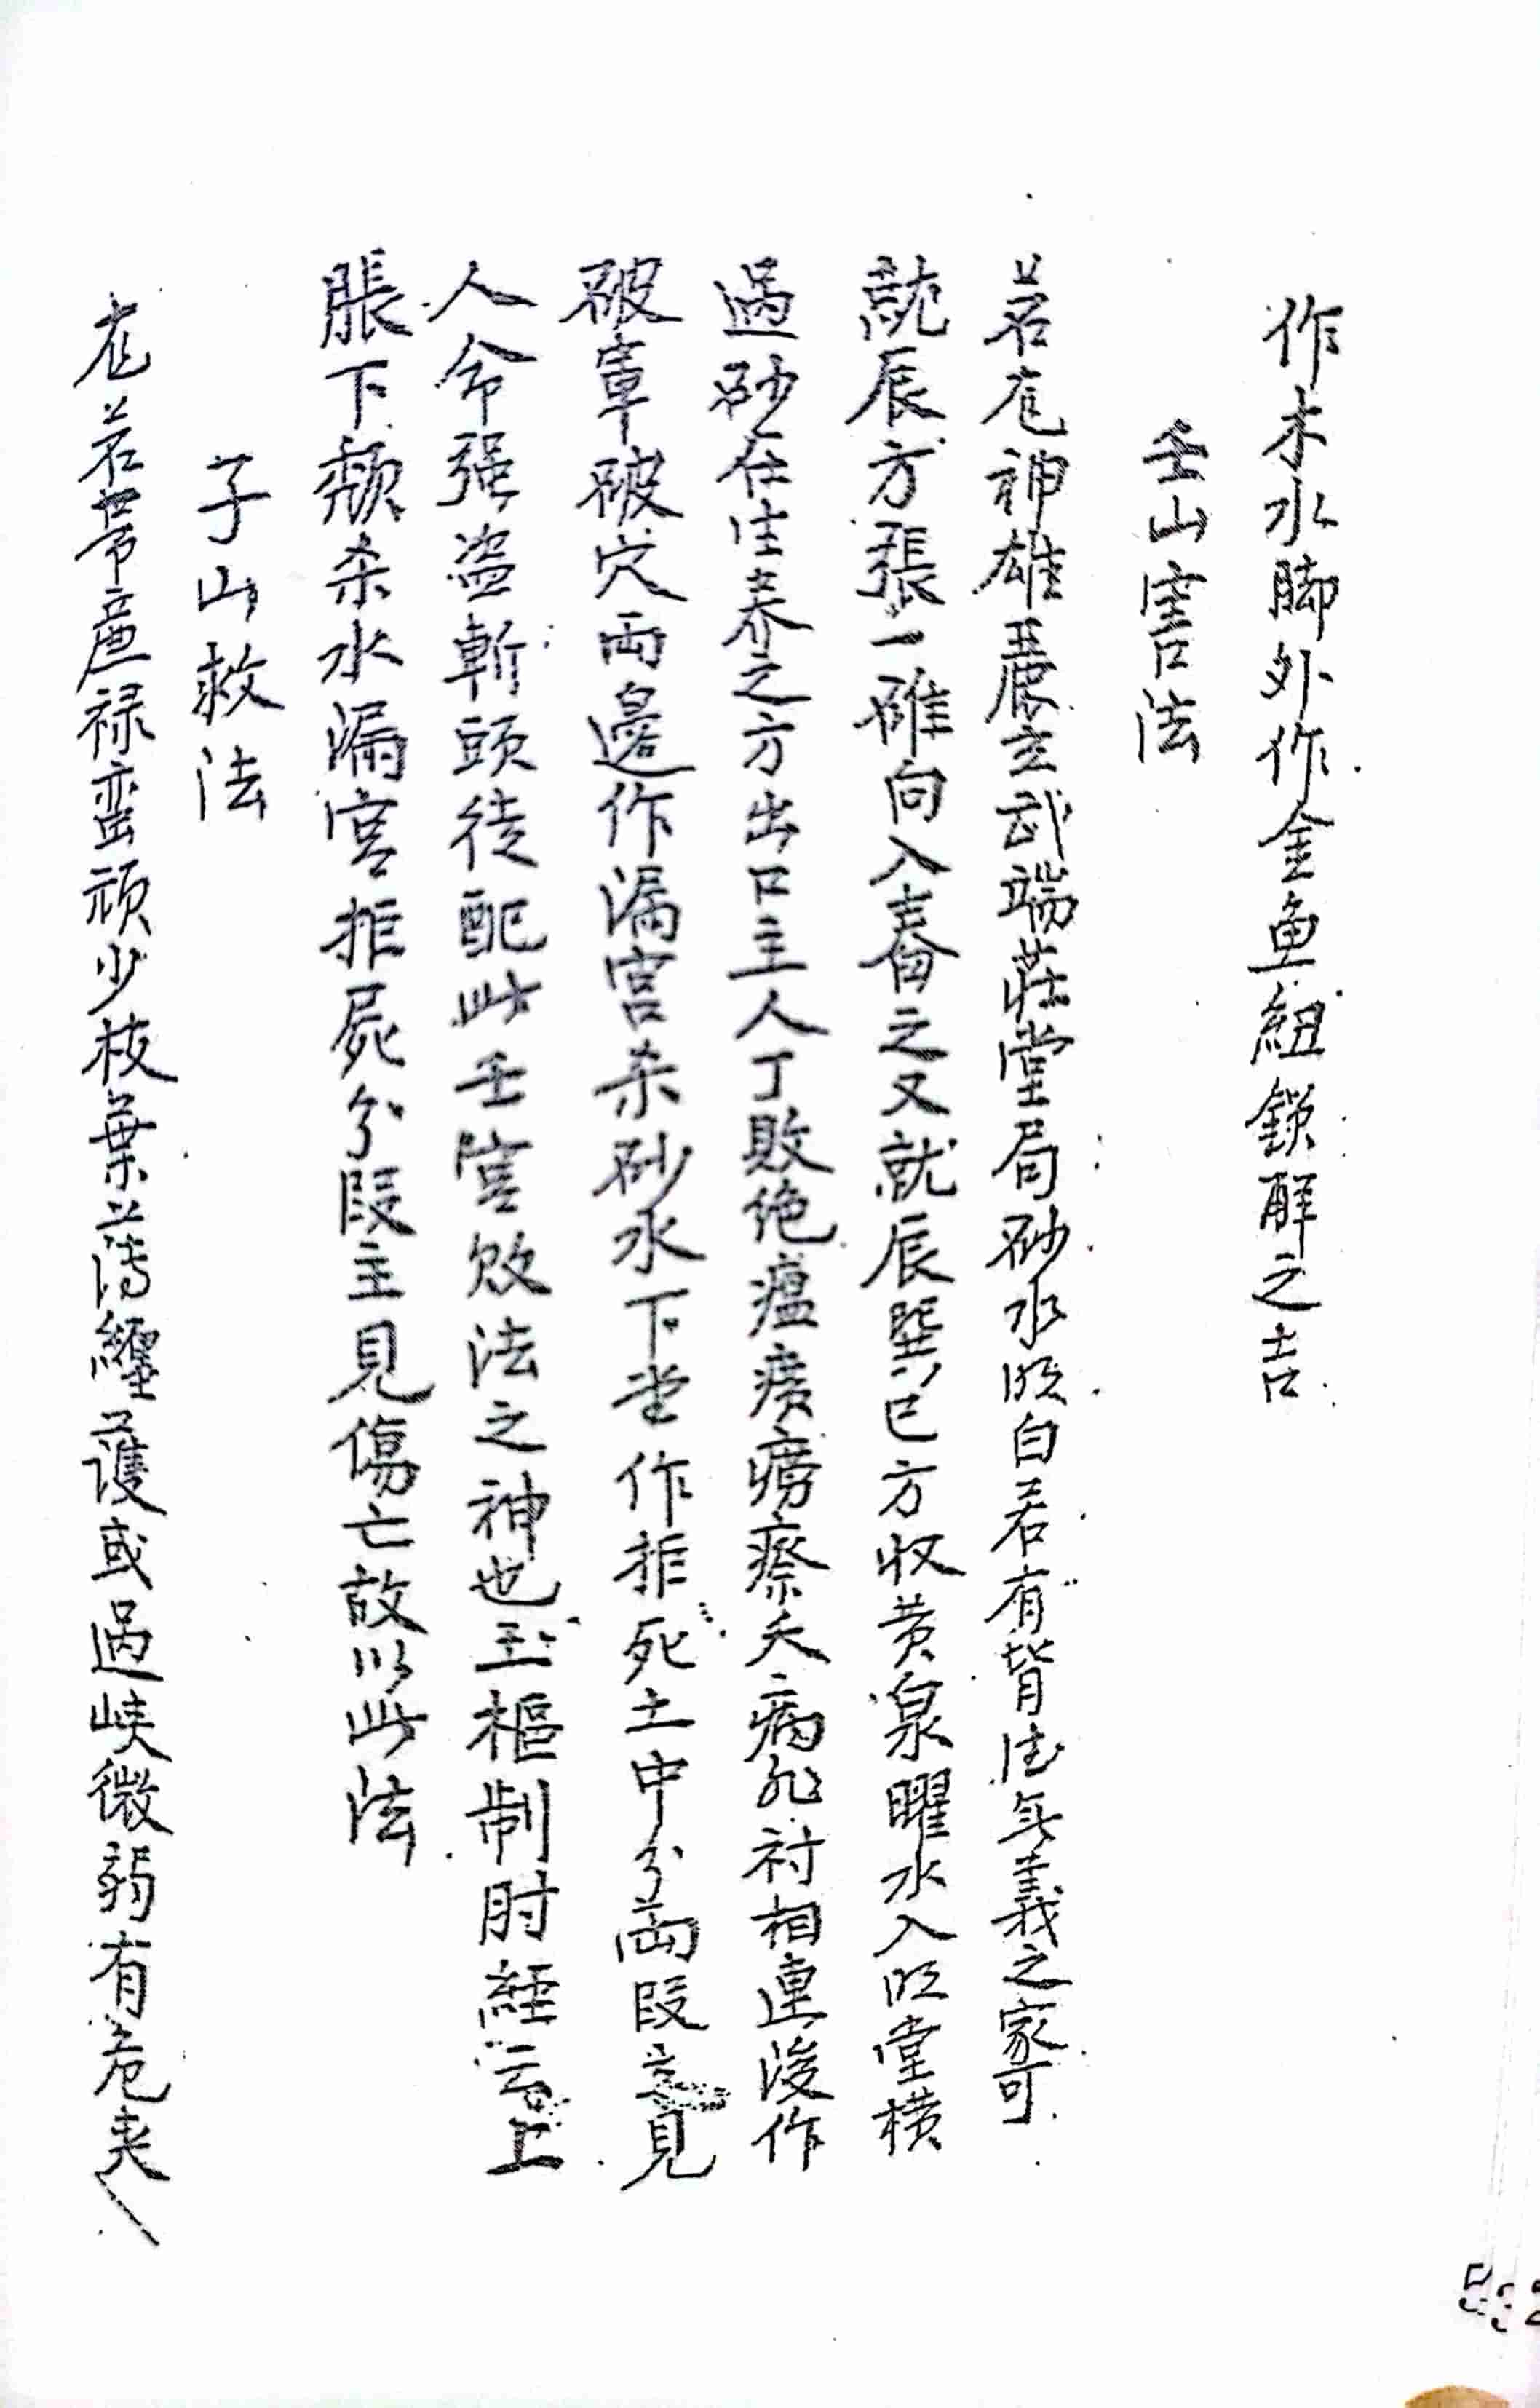 作木水脚外作金魚紐鎖解之吉
壬山害法
若龙神雄麗玄武端莊堂局砂水明白若有背法無義之家可
就辰方張一碓向入舂之又就辰巽巳方収黄泉曜水入明堂横
過砂在生养之方出口主人丁敗绝瘟癀癆瘵夭病死衬相連後作
破軍破穴両邊作漏宫杀砂水下坐作拒死土中分両段主見
人命强盗斬頭徒配此壬宫败法之神也玉樞制肘經云上
脹下頽杀水漏宫拒屍分段主見傷亡故以此法
子山救法
龙若帯産禄蛮頑少枝葉蕩纏護或過峡微弱有危夹